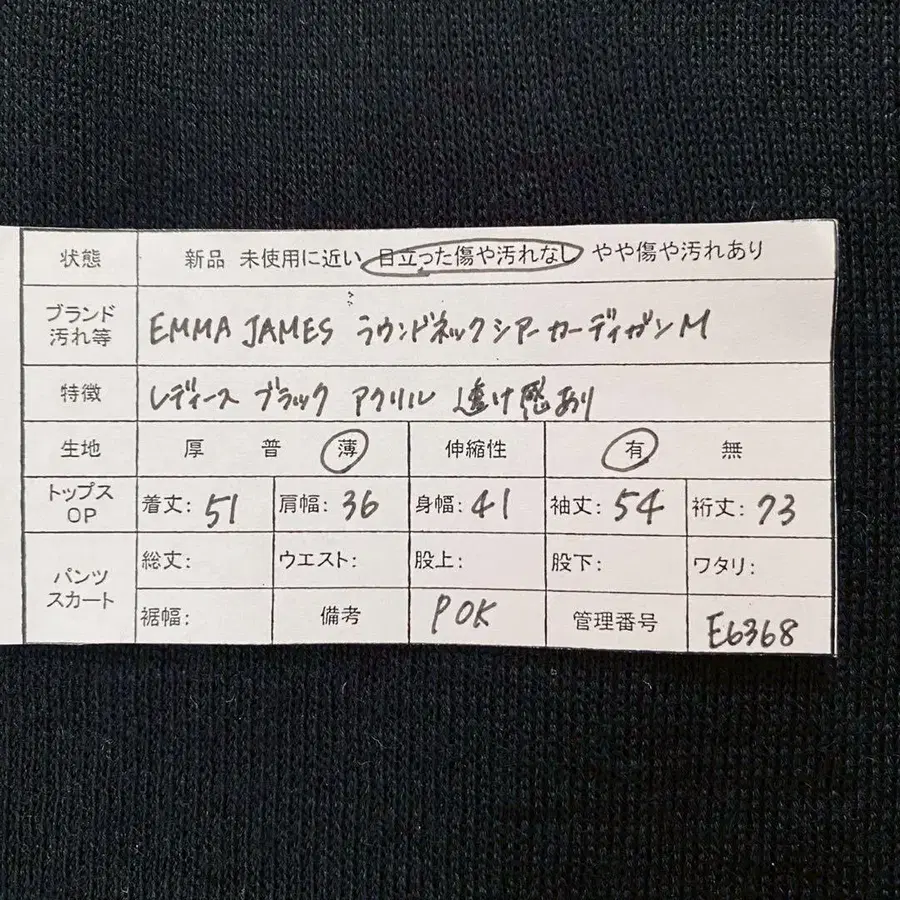 状態 新品 未使用に近い 目立った傷や汚れなし やや傷や汚れあり
ブランド
汚れ等 EMMA JAMES ラウンドネックシアーカーディガンM
特徴 レディース ブラック アクリル 透け感あり
生地 厚 普 薄 伸縮性 有 無
トップス
OP 着丈: 51 肩幅: 36 身幅: 41 袖丈: 54 裄丈: 73
パンツ
スカート 総丈: ウエスト: 股上: 股下: ワタリ:
裾幅: 備考 POK 管理番号 E6368